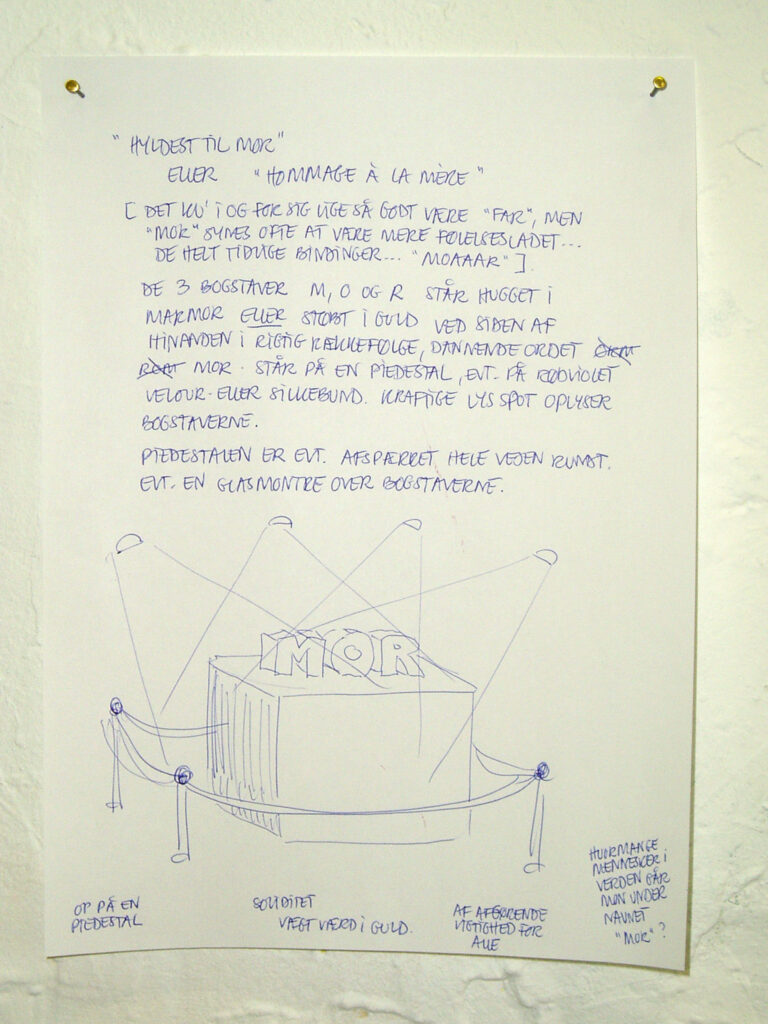 "HYLDEST TIL MOR"
ELLER "HOMMAGE À LA MÈRE"
[ DET KU' I OG FOR SIG LIGE SÅ GODT VÆRE "FAR", MEN
"MOR" SYNES OFTE AT VÆRE MERE FØLELSESLADET...
DE HELT TIDLIGE BINDINGER... "MOAAAR" ].
DE 3 BOGSTAVER M, O OG R STÅR HUGGET I
MARMOR ELLER STØBT I GULD VED SIDEN AF
HINANDEN I RIGTIG RÆKKEFØLGE, DANNENDE ORDET
MOR. STÅR PÅ EN PIEDESTAL, EVT. PÅ RØDVIOLET
VELOUR- ELLER SILKEBUND. KRAFTIGE LYSSPOT OPLYSER
BOGSTAVERNE.
PIEDESTALEN ER EVT. AFSPÆRRET HELE VEJEN RUNDT.
EVT. EN GLASMONTRE OVER BOGSTAVERNE.
MOR
OP PÅ EN
PIEDESTAL
SOLIDITET
VÆGT VÆRD I GULD.
AF AFGØRENDE
VIGTIGHED FOR
ALLE
HVOR MANGE
MENNESKER I
VERDEN GÅR
MON UNDER
NAVNET
"MOR"?